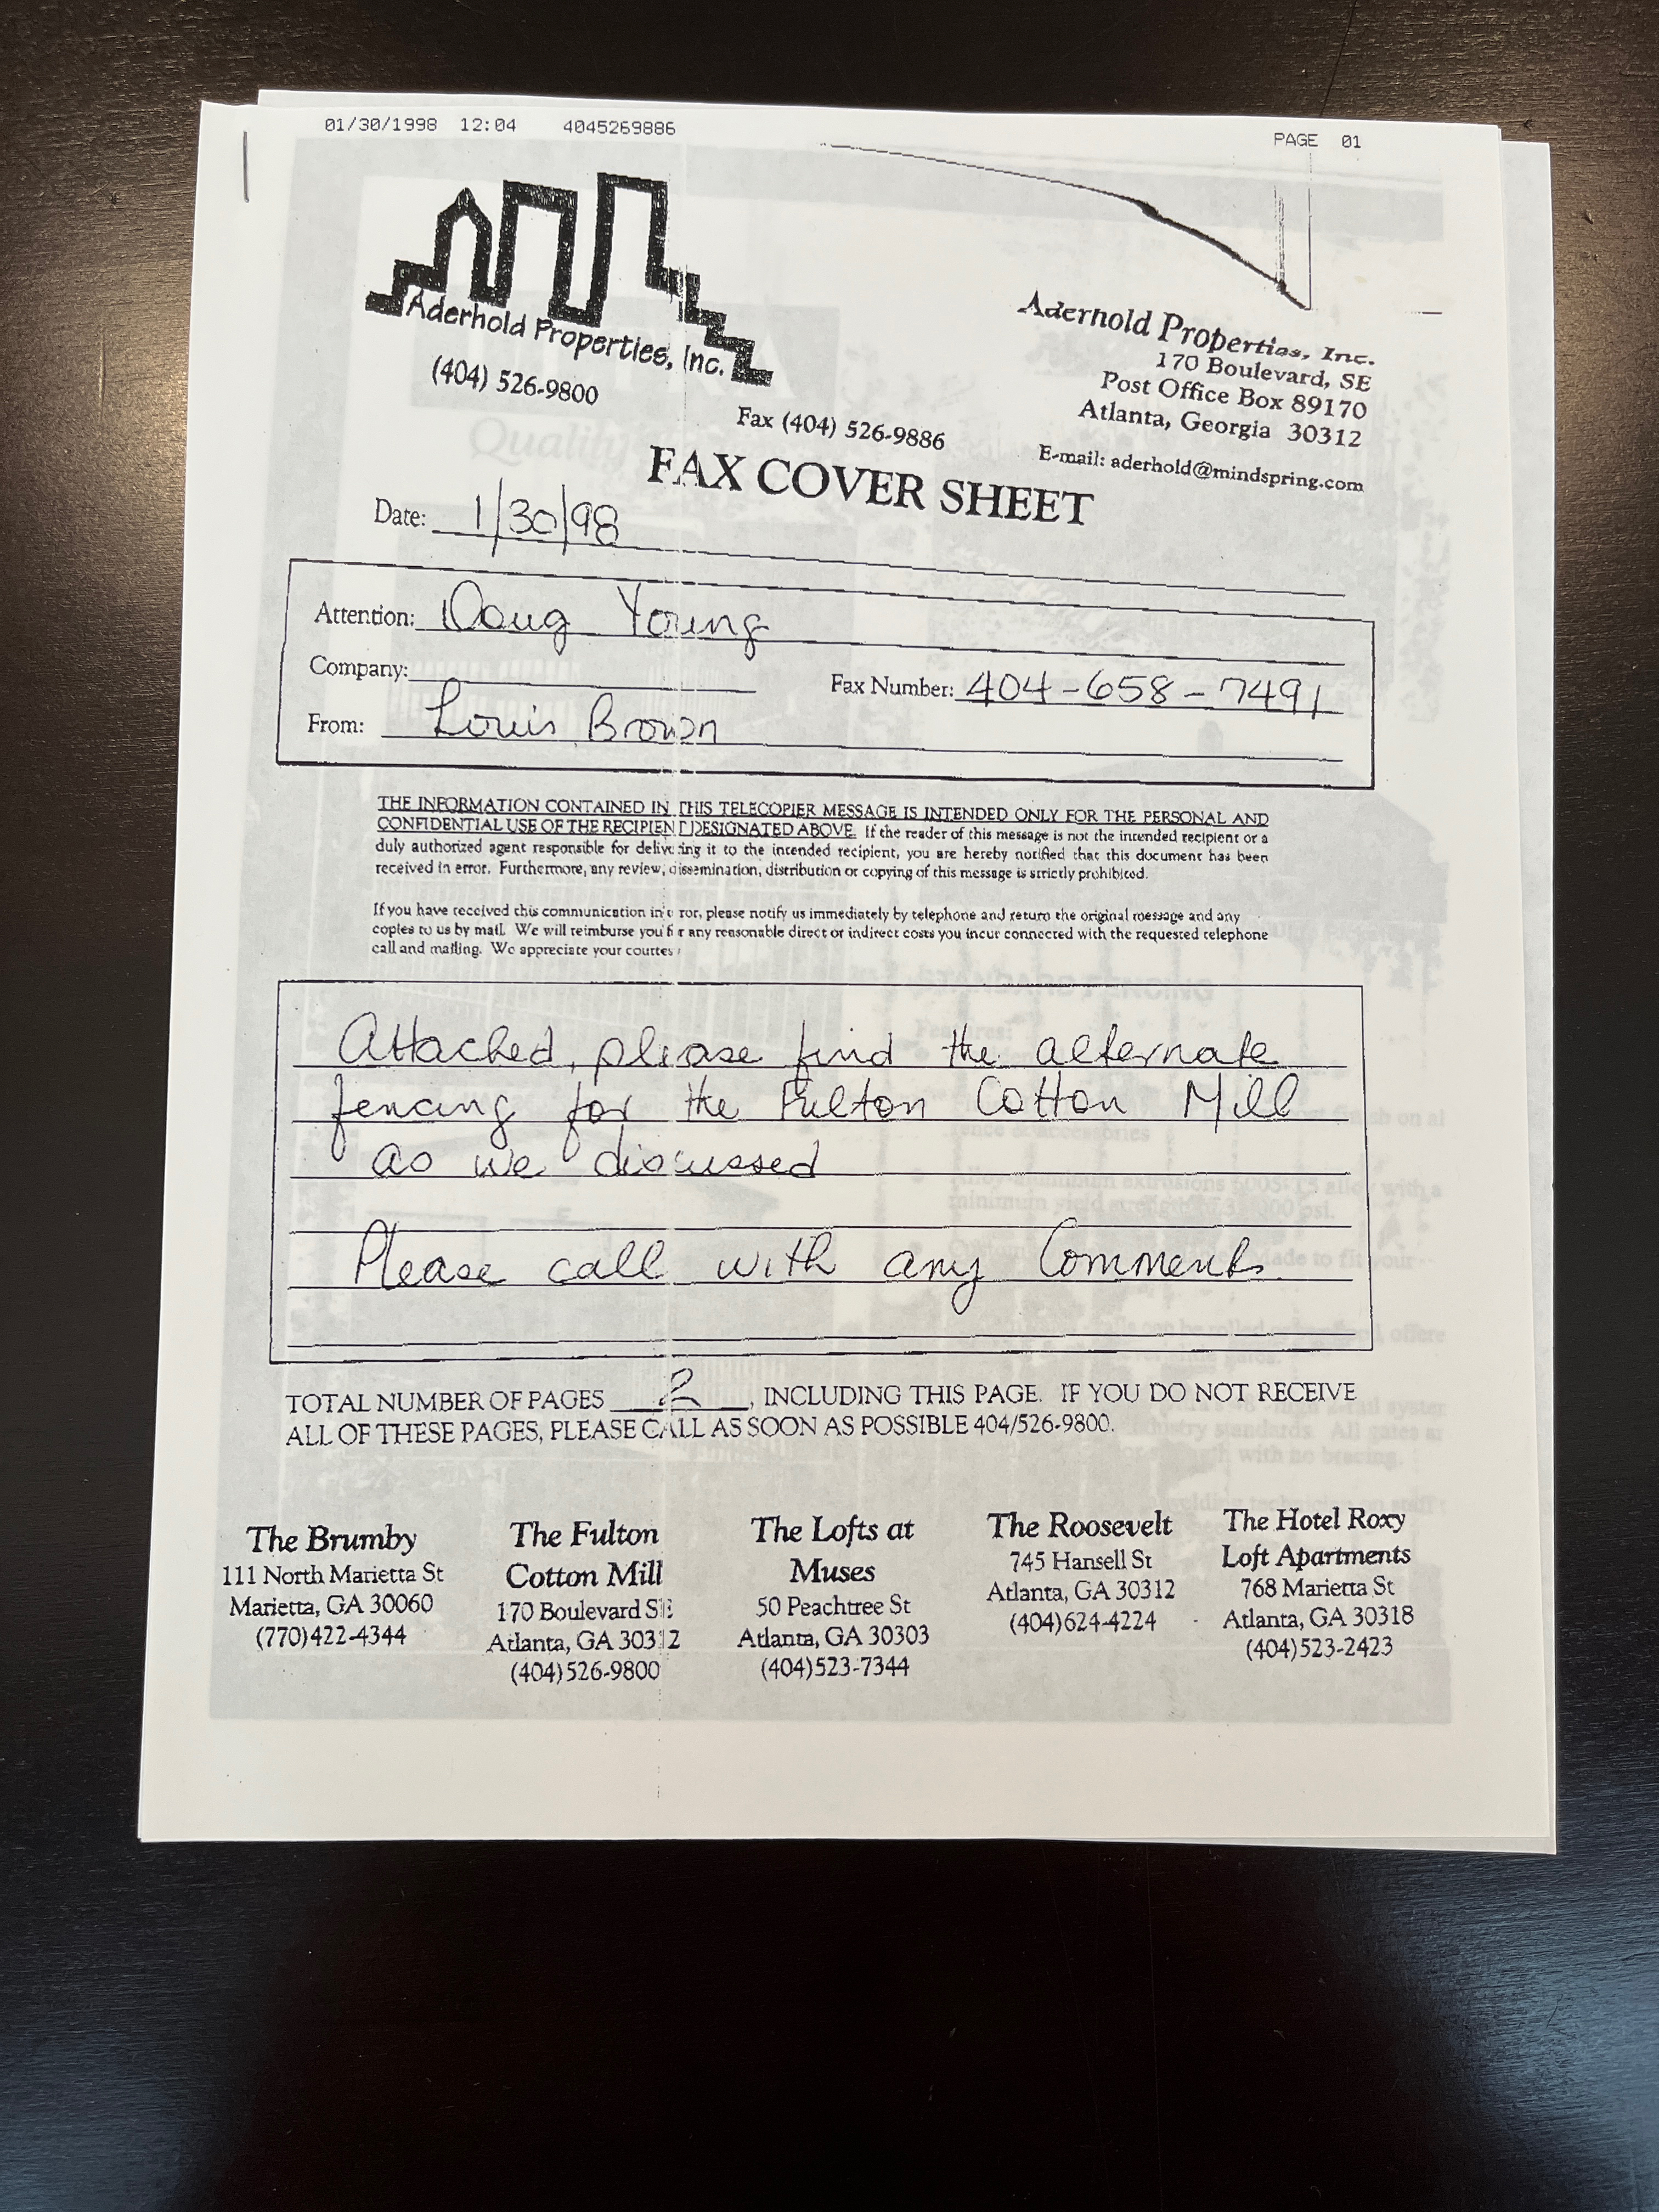 01/30/1998 12:04 4045269886 PAGE 01
Aderhold Properties, Inc.
(404) 526-9800
Fax (404) 526-9886
Aderhold Properties, Inc.
170 Boulevard, SE
Post Office Box 89170
Atlanta, Georgia 30312
E-mail: aderhold@mindspring.com
Quality
FAX COVER SHEET
Date: 1/30/98
Attention: Doug Young
Company:
Fax Number: 404-658-7491
From: Louis Brown
THE INFORMATION CONTAINED IN THIS TELECOPIER MESSAGE IS INTENDED ONLY FOR THE PERSONAL AND
CONFIDENTIAL USE OF THE RECIPIENT DESIGNATED ABOVE. If the reader of this message is not the intended recipient or a
duly authorized agent responsible for delivering it to the intended recipient, you are hereby notified that this document has been
received in error. Furthermore, any review, dissemination, distribution or copying of this message is strictly prohibited.
If you have received this communication in error, please notify us immediately by telephone and return the original message and any
copies to us by mail. We will reimburse you for any reasonable direct or indirect costs you incur connected with the requested telephone
call and mailing. We appreciate your courtesy
Attached, please find the alternate
fencing for the Fulton Cotton Mill
as we discussed
Please call with any Comments.
TOTAL NUMBER OF PAGES 2, INCLUDING THIS PAGE. IF YOU DO NOT RECEIVE
ALL OF THESE PAGES, PLEASE CALL AS SOON AS POSSIBLE 404/526-9800.
The Brumby
111 North Marietta St
Marietta, GA 30060
(770)422-4344
The Fulton
Cotton Mill
170 Boulevard SE
Atlanta, GA 30312
(404)526-9800
The Lofts at
Muses
50 Peachtree St
Atlanta, GA 30303
(404)523-7344
The Roosevelt
745 Hansell St
Atlanta, GA 30312
(404)624-4224
The Hotel Roxy
Loft Apartments
768 Marietta St
Atlanta, GA 30318
(404)523-2423